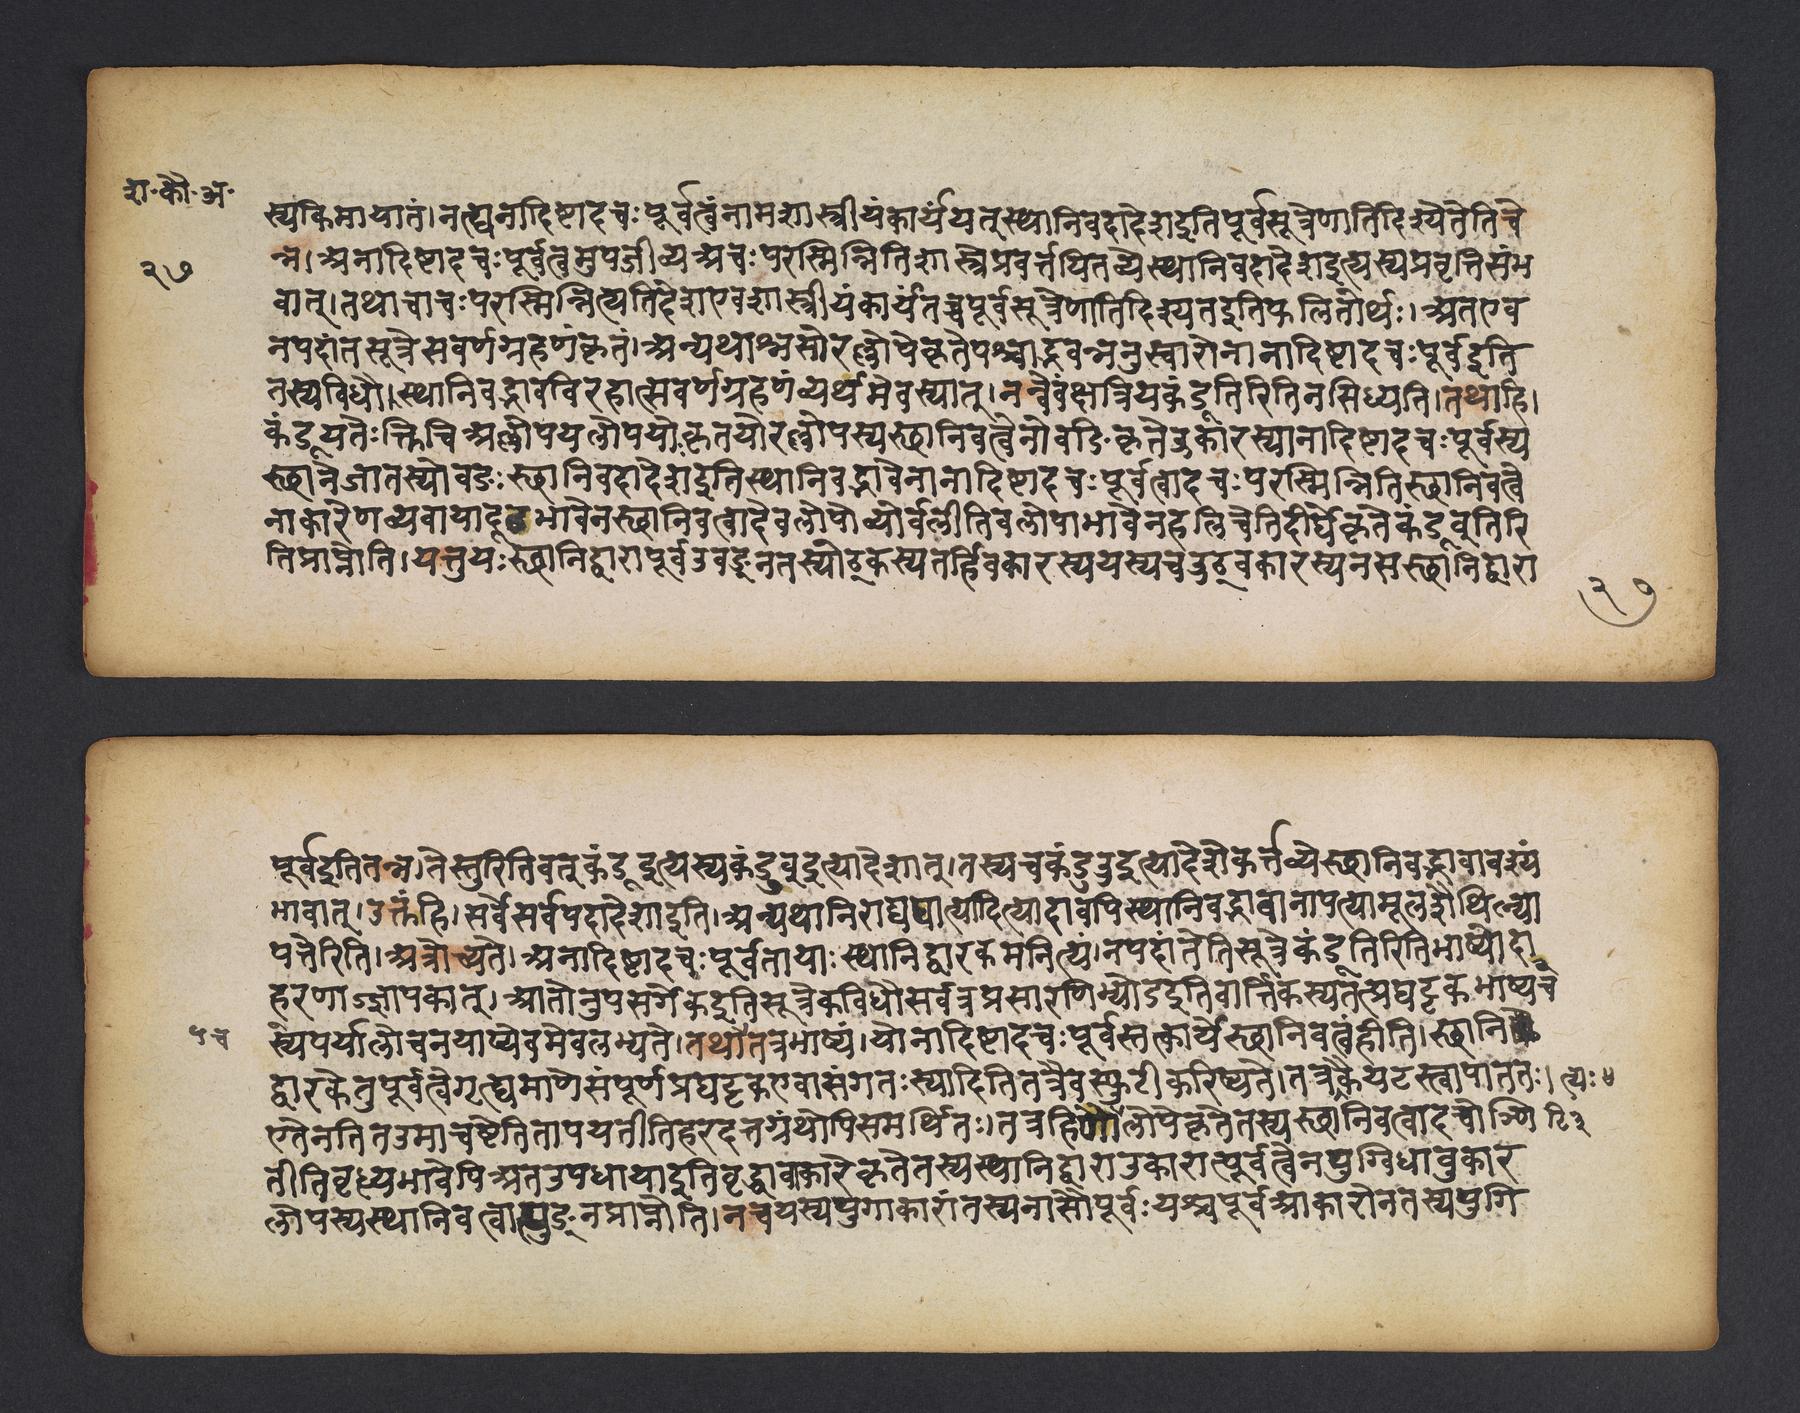 श·कौ·अ·
२७
स्यकिमायातं।नत्द्यनादिष्टादचःपूर्वत्वंनामशास्त्रीयंकार्यंयत्स्थानिवदादेशइतिपूर्वसूत्रेणातिदिश्येतेतिचे
न्न।अनादिष्टादचःपूर्वत्वमुपजीव्यअचःपरस्मिन्नितिशास्त्रेप्रवर्त्तयितव्येस्थानिवदादेशइत्यस्यप्रवृत्तिसंभ
वात्।तथाचाचःपरस्मिन्नित्यतिदेशएवशास्त्रीयंकार्यंतच्चपूर्वसूत्रेणातिदिश्यतइतिफलितोर्थः।अतएव
नपदांतसूत्रेसवर्णग्रहणंकृतं।अन्यथाश्नसोरल्लोपेकृतेपश्चाद्भवन्ननुस्वारोनानादिष्टादचःपूर्वइति
नस्यविधौ।स्थानिवद्भावविरहात्सवर्णग्रहणंव्यर्थमेवस्यात्।नन्वेवंक्षात्रियकंडूतिरितिनसिध्यति।तथाहि।
कंडूयतेःक्तिचिअल्लोपयलोपयोःकृतयोरल्लोपस्यस्छानिवत्वेनोवङिकृतेउकारस्यानादिष्टादचःपूर्वस्य
स्छानेजातस्योवङःस्छानिवदादेशइतिस्थानिवद्भावेनानादिष्टादचःपूर्वत्वादचःपरस्मिन्नितिस्छानिवत्वे
नाकारेणव्यवायादूठभावेनस्छानिवत्वादेवलोपोव्योर्वलीतिवलोपाभावेनहलिचेतिदीर्घेकृतेकंडूवुतिरि
तिप्राप्नोति।यत्तुयःस्छानिद्वारापूर्वउवङ्नतस्योठ्कस्यतर्हिवकारस्ययस्यचउठ्वकारस्यनसस्छानिद्वारा
२७
पूर्वइतितन्न।तेस्तुरितिवत्कंडूइत्यस्यकंडुवुइत्यादेशात्।तस्यचकंडुउइत्यादेशेकर्त्तव्येस्छानिवद्भावावश्यं
भावात्।उक्तंहि।सर्वेसर्वपदादेशाइति।अन्यथानिराद्यद्यात्यादित्यादावपिस्थानिवद्भावानापत्यामूलशैथिल्या
पत्तेरिति।अत्रोच्यते।अनादिष्टादचःपूर्वतायाःस्थानिद्वारकमनित्यं।नपदांतेतिसूत्रेकंडूतिरितिभाष्योदा
हरणाज्ज्ञापकात्।आतोनुपसर्गेकइतिसूत्रेकविधौसर्वत्रप्रसारणिभ्योडइतिवार्त्तिकस्यतत्प्रघट्टकभाष्य
५च
स्यपर्यालोचनयाप्येवमेवलभ्यते।तथातत्रभाष्यं।योनादिष्टादचःपूर्वस्तत्कार्येस्छानिवत्वंहीति।स्छानि
द्वारकेतुपूर्वत्वेगृत्द्यमाणेसंपूर्णप्रघट्टकएवासंगतःस्यादितितत्रैवस्फुटीकरिष्यते।तत्रकैयटस्त्वापाततः।त्यः५
एतेनतितउमाचष्टेतितापयतीतिहरदत्तग्रंथोपिसमर्थितः।तत्रहिणौलोपेकृतेतस्यस्छानिवत्वादचोञ्णि टि३
तीतिवृध्यभावेपिअतउपधायाइतिवृद्धावाकारेकृतेतस्यस्थानिद्वाराउकारात्पूर्वत्वेनपुग्विधावुकार
लोपस्यस्थानिवत्वात्पुङ्नप्राप्नोति।नचयस्यपुगाकारांतस्यनासौपूर्वःयश्चपूर्वआकारोनतस्यपुगि